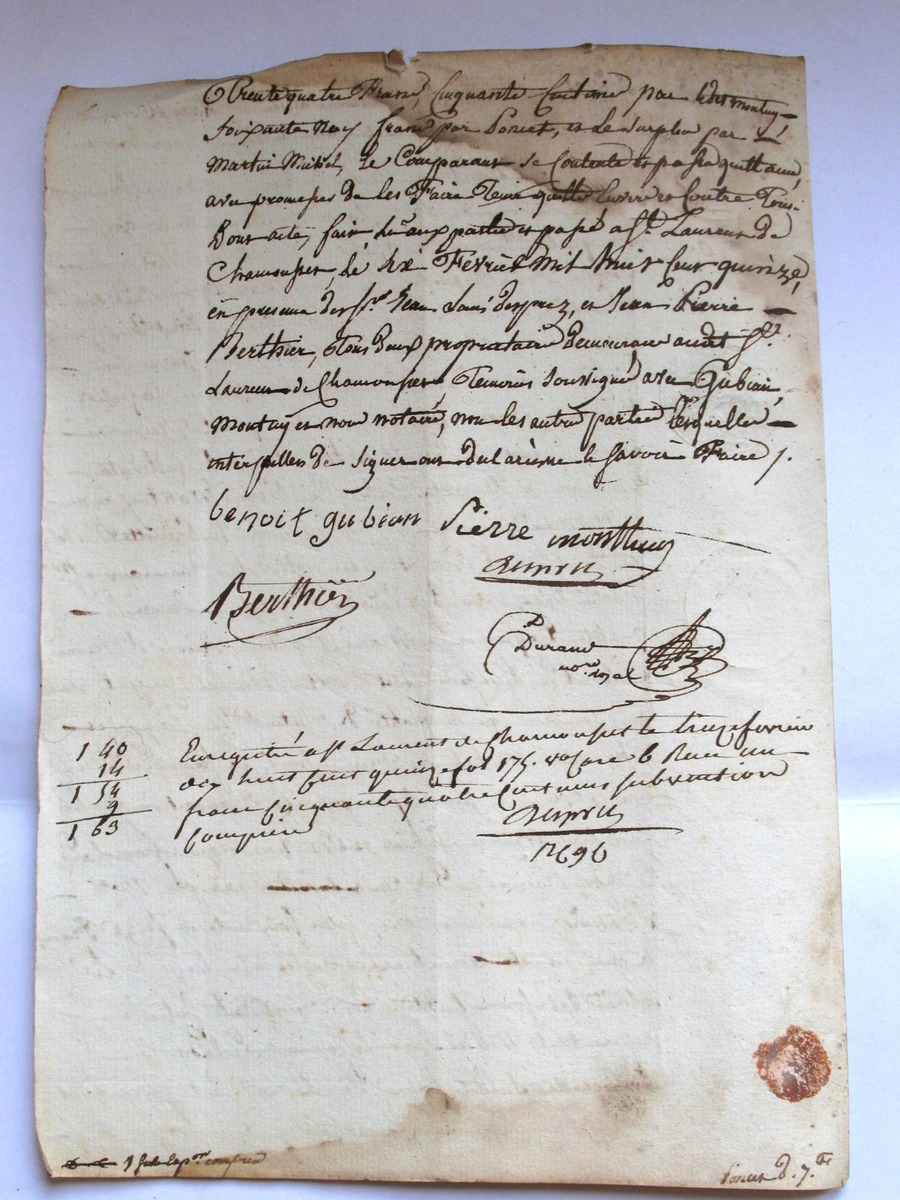 Trente quatre Franc, Cinquante Centime par ledit montuy
soixante neuf franc par Poncet, et le surplus par
Martin Michel, le Comparant se Contente et passe quittance,
avec promesses de les Faire Tenir quitte Envers et Contre Tous.
Dont acte, fait, lu aux parties et passé a St. Laurent de
Chamousset, le six Fevrier mil huit Cent quinze,
en presence des Srs. Jean Louis desprez, et Jean Pierre
Berthier, Tous deux proprietaires demeurant audit St.
Laurent de Chamousset Temoins soussignés avec Gubian,
Montuy et nous notaire, non les autres parties lesquelles
interpellées de signer ont declarées ne le savoir Faire
benoit gubian Pierre monttuy
Berthier
Durand
nore. royal
1 40
14
1 54
9
1 63
Enregistré a St Laurent de Chamousset le treize fevrier
dix huit Cent quinze fol 175. Reçu un
franc Cinquante quatre Centimes subvention
Comprise